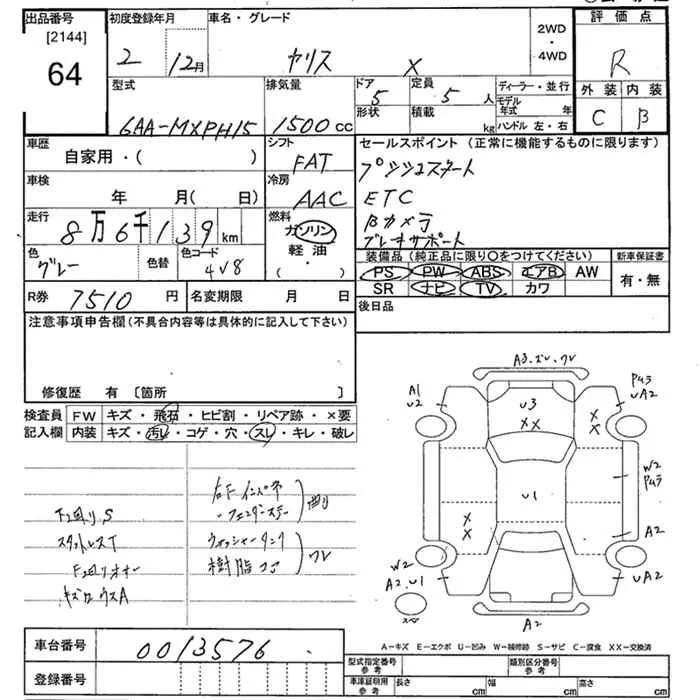 出品番号
[2144]
64
初度登録年月
2 12月
車名・グレード
ヤリス X
2WD
・
4WD
評価点
R
外装 内装
C B
型式
6AA-MXPH15
排気量
1500cc
ドア 5
形状
定員 5人
積載 kg
ディーラー・並行
モデル年式 年
ハンドル 左・右
車歴
自家用・( )
シフト
FAT
車検
年 月( 日)
冷房
AAC
走行
8万6千139km
燃料
ガソリン
軽油
( ・ )
色
グレー
色替
色コード
4V8
R券 7510円
名変期限 月 日
セールスポイント (正常に機能するものに限ります)
プッシュスタート
ETC
Bカメラ
ブレーキサポート
装備品 (純正品に限り○をつけてください)
PS PW ABS エアB AW
SR ナビ TV カワ
新車保証書
有・無
後日品
注意事項申告欄(不具合内容等は具体的に記入して下さい)
修復歴 有 〔箇所 〕
検査員
記入欄
FW キズ・飛石・ヒビ割・リペア跡・×要
内装 キズ・汚レ・コゲ・穴・スレ・キレ・破レ
F廻りS
スタットレスT
右Fインパネ
・フェンダーステー
曲り
ウォッシャータンク
樹脂コア
ワレ
A3.ズレ.ワレ
A1
U2
U3
XX
XX
UA2
W2
U1
A2
XX
W2
A2.U1
UA2
A2
A-キズ E-エクボ U-凹み W-補修跡 S-サビ C-腐食 XX-交換済
車台番号
0013576
登録番号
型式指定番号
参考
類別区分番号
参考
車庫証明用
参考
長さ cm
幅 cm
高さ cm